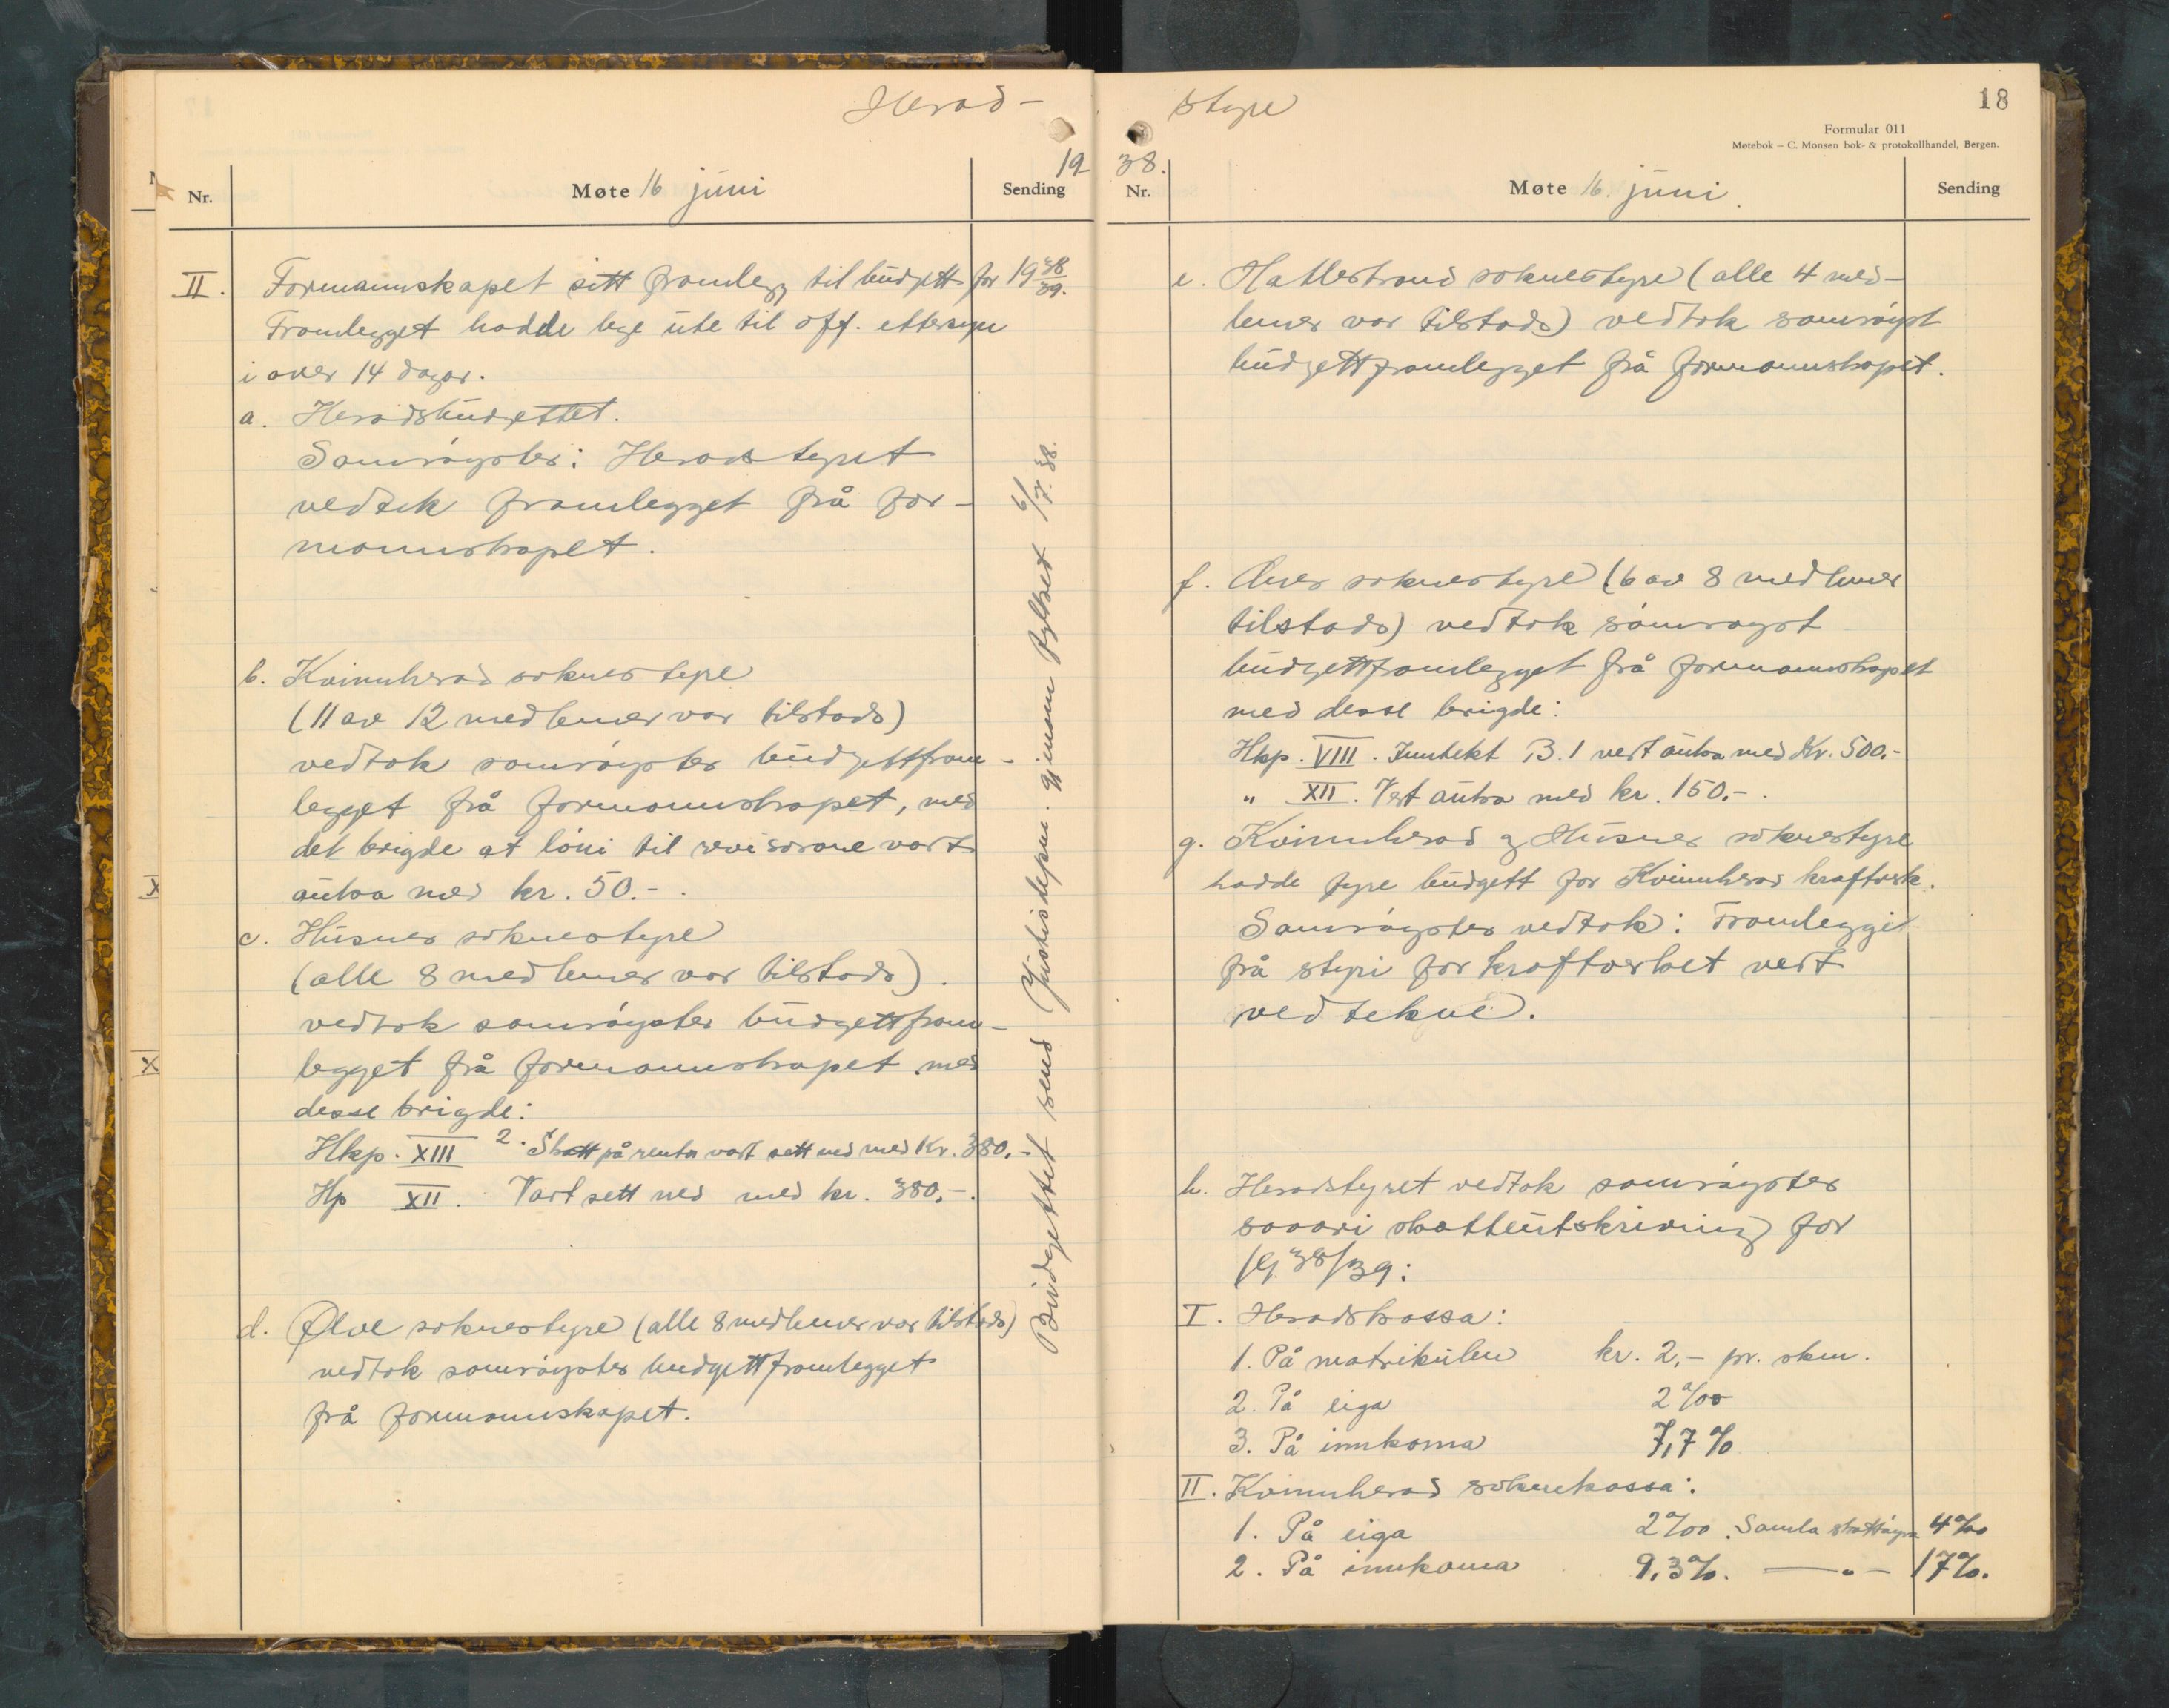 Herad-
19
Nr.
Møte 16 juni
Sending
II. Formannskapet sitt framlegg til budgett for 19 38/39.
Framlegget hadde lege ute til off. ettersyn
i over 14 dagar.
a. Heradsbudgettet.
Samrøystes: Heradstyret
vedtek framlegget frå for-
mannskapet.
b. Kvinnherad soknestyre
(11 av 12 medlemer var tilstads)
vedtok samrøystes budgettfram-
legget frå formannskapet, med
det brigde at løni til revisorane vart
auka med kr. 50.-.
c. Husnes soknestyre
(alle 8 medlemer var tilstads).
vedtok samrøystes budgettfram-
legget frå formannskapet med
desse brigde:
Hkp. XIII 2. Skatt på renta vart sett ned med Kr. 380.-
Hp XII. Vart sett ned med kr. 380,-.
d. Ølve soknestyre (alle 8 medlemer var tilstads)
vedtok samrøystes budgettframlegget
frå formannskapet.
Budgettet send Justisdepm. gjenom fylket 6/7.38.
styre
18
Formular 011
Møtebok – C. Monsen bok- & protokollhandel, Bergen.
38.
Nr.
Møte 16. juni.
Sending
e. Hatlestrand soknestyre (alle 4 med-
lemer var tilstads) vedtok samrøyst
budgettframlegget frå formannskapet.
f. Ånes soknestyre (6 av 8 medlemer
tilstads) vedtok samrøyst
budgettframlegget frå formannskapet
med desse brigde:
Hkp. VIII. Inntekt B.1 vert auka med Kr. 500.-
" XII. Vert auka med kr. 150.-.
g. Kvinnherad og Husnes soknestyre
hadde fyre budgett for Kvinnherad kraftverk.
Samrøystes vedtok: Framlegget
frå styri for kraftverket vert
vedteke.
h. Heradstyret vedtok samrøystes
soovori skatteutskriving for
19.38/39:
I. Heradskassa:
1. På matrikulen kr. 2,- pr. skm.
2. På eiga 2‰
3. På innkoma 7,7%
II. Kvinnherad soknekassa:
1. På eiga 2‰. Samla skattøyre 4‰
2. På innkoma 9,3%. —"— 17%.